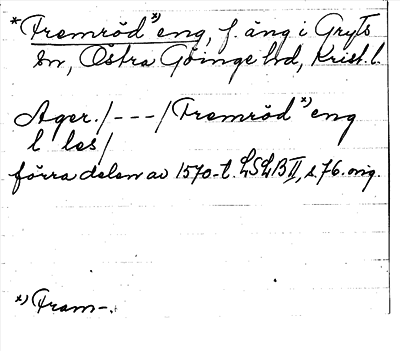 *Fremröd *) eng, f. äng i Gryts
sn, Östra Göinge hd, Krist. l.
Ager. / - - - / Fremröd *) eng
l les /
förra delen av 1570-t. LSLB II, s. 76. orig.
*) Fram-.